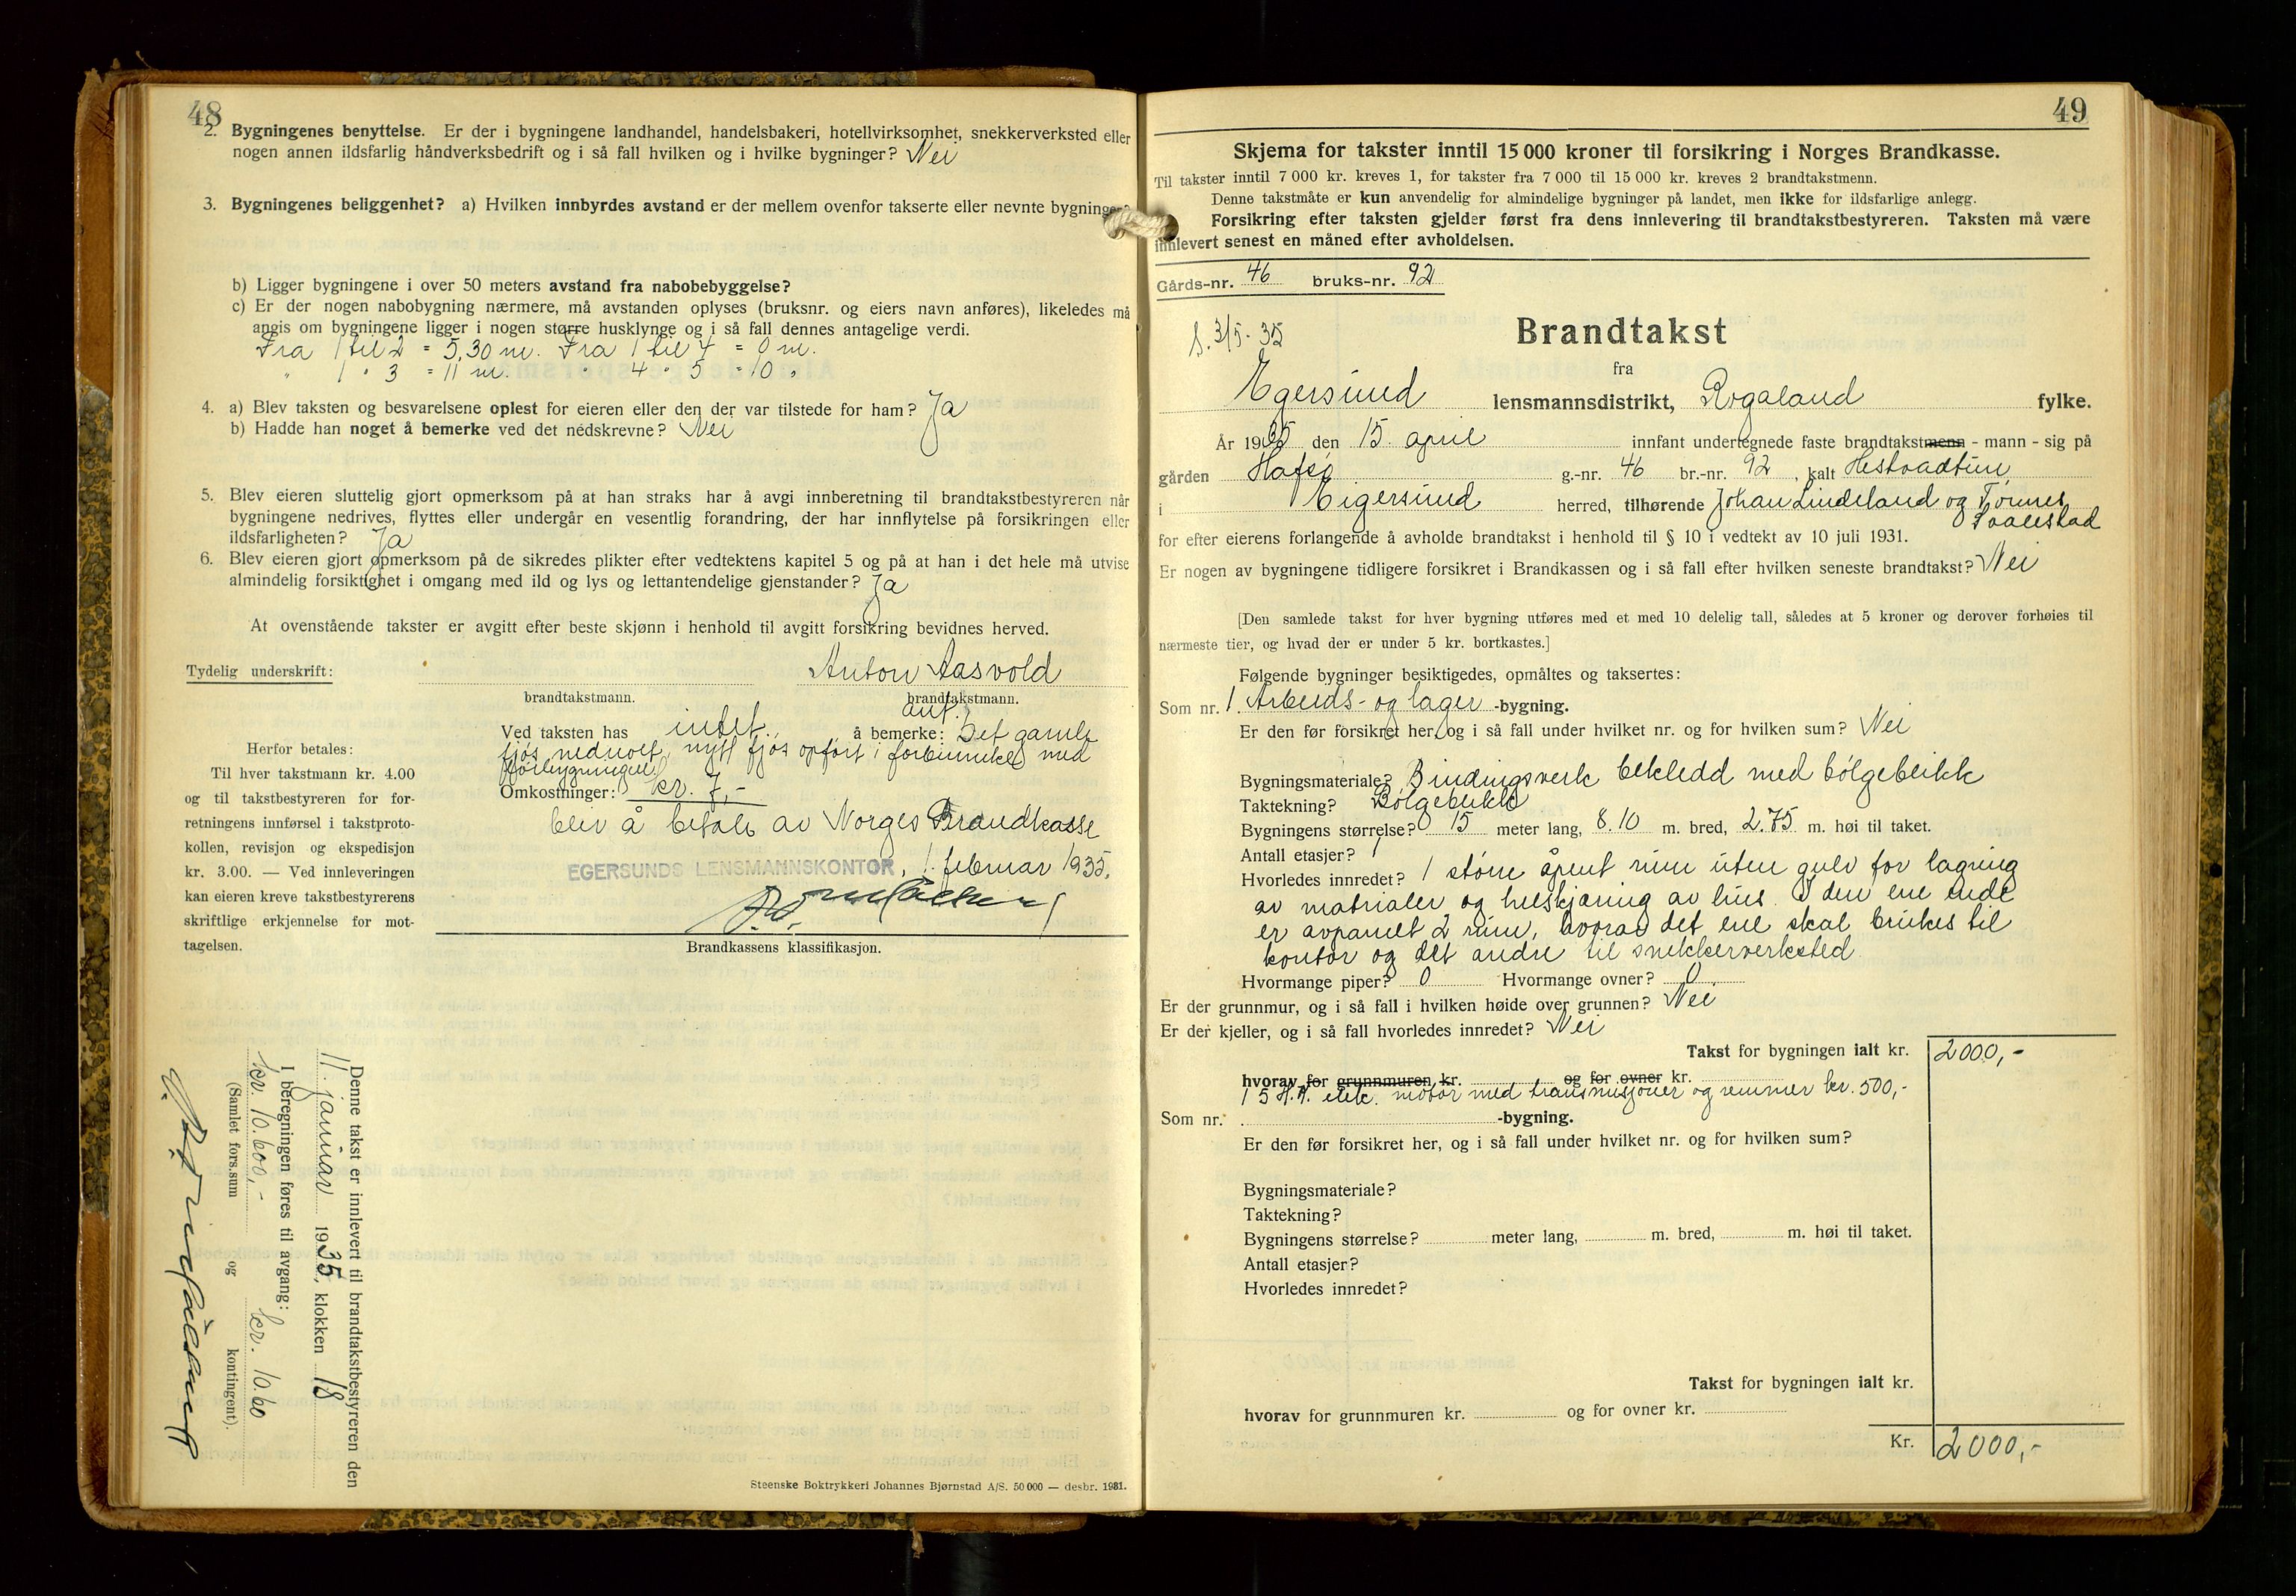 48
2. Bygningenes benyttelse. Er der i bygningene landhandel, handelsbakeri, hotellvirksomhet, snekkerverksted eller
nogen annen ildsfarlig håndverksbedrift og i så fall hvilken og i hvilke bygninger? Nei
3. Bygningenes beliggenhet? a) Hvilken innbyrdes avstand er der mellem ovenfor takserte eller nevnte bygninger?
b) Ligger bygningene i over 50 meters avstand fra nabobebyggelse?
c) Er der nogen nabobygning nærmere, må avstanden oplyses (bruksnr. og eiers navn anføres), likeledes må
angis om bygningene ligger i nogen større husklynge og i så fall dennes antagelige verdi.
Fra 1 til 2 = 5,30 m. Fra 1 til 4 = 0 m.
" 1 " 3 = 11 m. " 4 " 5 = 10 "
4. a) Blev taksten og besvarelsene oplest for eieren eller den der var tilstede for ham? Ja
b) Hadde han noget å bemerke ved det nedskrevne? Nei
5. Blev eieren sluttelig gjort opmerksom på at han straks har å avgi innberetning til brandtakstbestyreren når
bygningene nedrives, flyttes eller undergår en vesentlig forandring, der har innflytelse på forsikringen eller
ildsfarligheten? Ja
6. Blev eieren gjort opmerksom på de sikredes plikter efter vedtektens kapitel 5 og på at han i det hele må utvise
almindelig forsiktighet i omgang med ild og lys og lettantendelige gjenstander? Ja
At ovenstående takster er avgitt efter beste skjønn i henhold til avgitt forsikring bevidnes herved.
Tydelig underskrift: Anton Aasvold
brandtakstmann. brandtakstmann.
Ved taksten has intet å bemerke: Det gamle
fjøs nedrevet, nytt fjøs opført i forbindelse med
Omkostninger: kr. 7,-
blev å betale av Norges Brandkasse
EGERSUNDS LENSMANNSKONTOR, 1. februar 1935.
Brandkassens klassifikasjon.
Herfor betales:
Til hver takstmann kr. 4.00
og til takstbestyreren for for-
retningens innførsel i takstproto-
kollen, revisjon og ekspedisjon
kr. 3.00. — Ved innleveringen
kan eieren kreve takstbestyrerens
skriftlige erkjennelse for mot-
tagelsen.
Denne takst er innlevert til brandtakstbestyreren den
11. januar 1935, klokken 18
I beregningen føres til avgang:
kr. 10.600,- kr. 10.60
(Samlet fors.sum og kontingent).
Steenske Boktrykkeri Johannes Bjørnstad A/S. 50 000 — desbr. 1931.
49
Skjema for takster inntil 15 000 kroner til forsikring i Norges Brandkasse.
Til takster inntil 7 000 kr. kreves 1, for takster fra 7 000 til 15 000 kr. kreves 2 brandtakstmenn.
Denne takstmåte er kun anvendelig for almindelige bygninger på landet, men ikke for ildsfarlige anlegg.
Forsikring efter taksten gjelder først fra dens innlevering til brandtakstbestyreren. Taksten må være
innlevert senest en måned efter avholdelsen.
Gårds-nr. 46 bruks-nr. 92
3/5-35
Brandtakst
fra
Egersund lensmannsdistrikt, Rogaland fylke.
År 1935 den 15. april innfant undertegnede faste brandtakstmenn - mann - sig på
gården Hafsø g.-nr. 46 br.-nr. 92, kalt Hestvadtun
i Eigersund herred, tilhørende Johan Lindeland og Tønnes
for efter eierens forlangende å avholde brandtakst i henhold til § 10 i vedtekt av 10 juli 1931.
Er nogen av bygningene tidligere forsikret i Brandkassen og i så fall efter hvilken seneste brandtakst? Nei
[Den samlede takst for hver bygning utføres med et med 10 delelig tall, således at 5 kroner og derover forhøies til
nærmeste tier, og hvad der er under 5 kr. bortkastes.]
Følgende bygninger besiktigedes, opmåltes og taksertes:
Som nr. 1. Arbeids- og lager -bygning.
Er den før forsikret her, og i så fall under hvilket nr. og for hvilken sum? Nei
Bygningsmateriale? Bindingsverk bekledd med bølgeblikk
Taktekning? Bølgeblikk
Bygningens størrelse? 15 meter lang, 8.10 m. bred, 2.75 m. høi til taket.
Antall etasjer? 1
Hvorledes innredet? 1 større åpent rum uten gulv for lagring
av matrialer og helskjæring av hus. I den ene ende
er avpanelt 2 rum, hvorav det ene skal brukes til
kontor og det andre til snekkerverksted
Hvormange piper? 0 Hvormange ovner? 0
Er der grunnmur, og i så fall i hvilken høide over grunnen? Nei
Er der kjeller, og i så fall hvorledes innredet? Nei
Takst for bygningen ialt kr. 2000,-
hvorav for grunnmuren kr. og for ovner kr.
1 5 H.K. elek. motor med transmisjoner og remmer kr. 500,-
Som nr. -bygning.
Er den før forsikret her, og i så fall under hvilket nr. og for hvilken sum?
Bygningsmateriale?
Taktekning?
Bygningens størrelse? meter lang, m. bred, m. høi til taket.
Antall etasjer?
Hvorledes innredet?
Takst for bygningen ialt kr.
hvorav for grunnmuren kr. og for ovner kr.
Kr. 2000,-